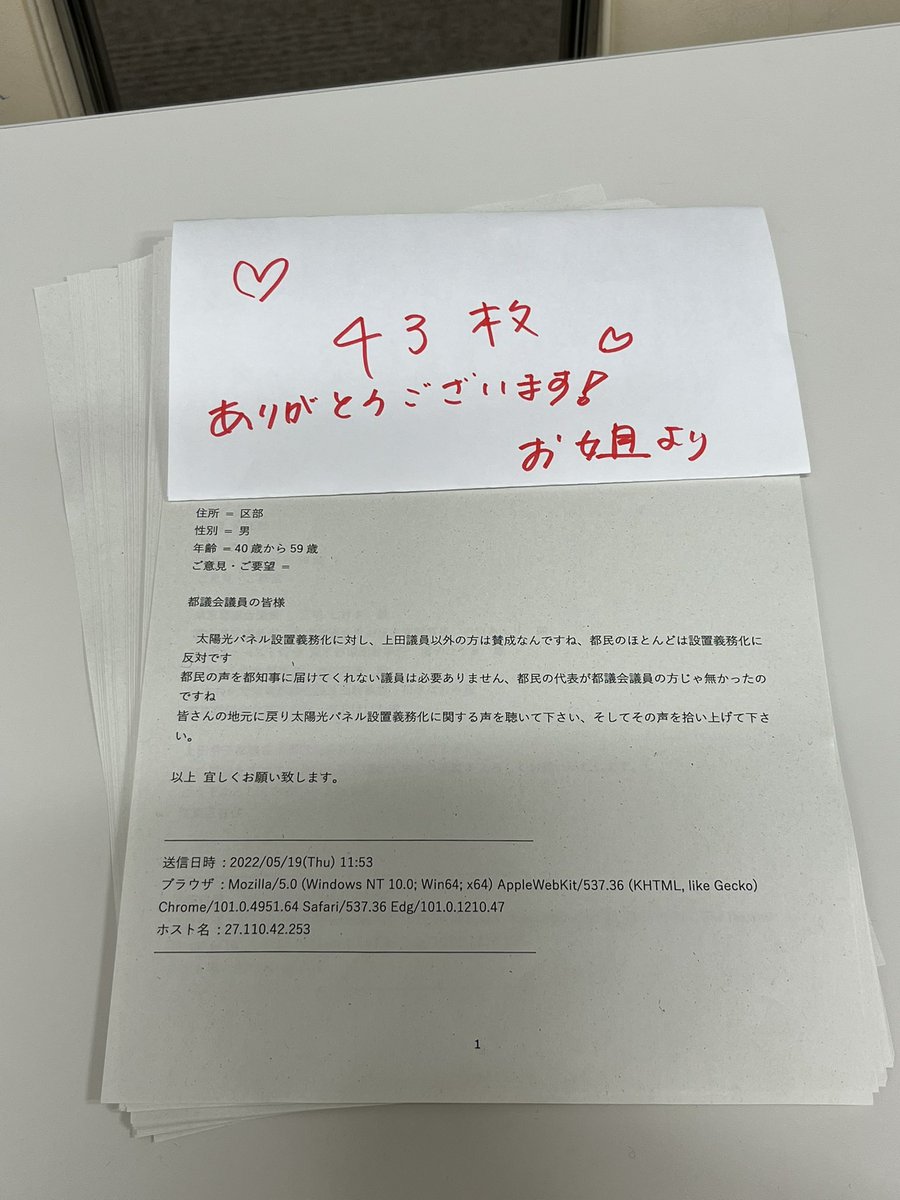 43枚
ありがとうございます!
お姐より
住所 = 区部
性別 = 男
年齢 = 40歳から59歳
ご意見・ご要望 =
都議会議員の皆様
太陽光パネル設置義務化に対し、上田議員以外の方は賛成なんですね、都民のほとんどは設置義務化に
反対です
都民の声を都知事に届けてくれない議員は必要ありません、都民の代表が都議会議員の方じゃ無かったの
ですね
皆さんの地元に戻り太陽光パネル設置義務化に関する声を聴いて下さい、そしてその声を拾い上げて下さ
い。
以上 宜しくお願い致します。
送信日時 : 2022/05/19(Thu) 11:53
ブラウザ : Mozilla/5.0 (Windows NT 10.0; Win64; x64) AppleWebKit/537.36 (KHTML, like Gecko)
Chrome/101.0.4951.64 Safari/537.36 Edg/101.0.1210.47
ホスト名 : 27.110.42.253
1